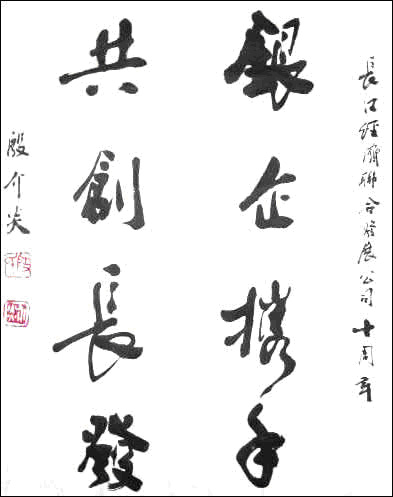 長江經濟聯合發展公司十周年
銀企攜手
共創長發
殷介炎